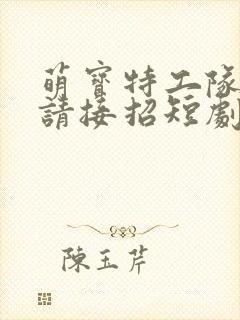 萌寶特工隊
請接招短劇
陳玉芹